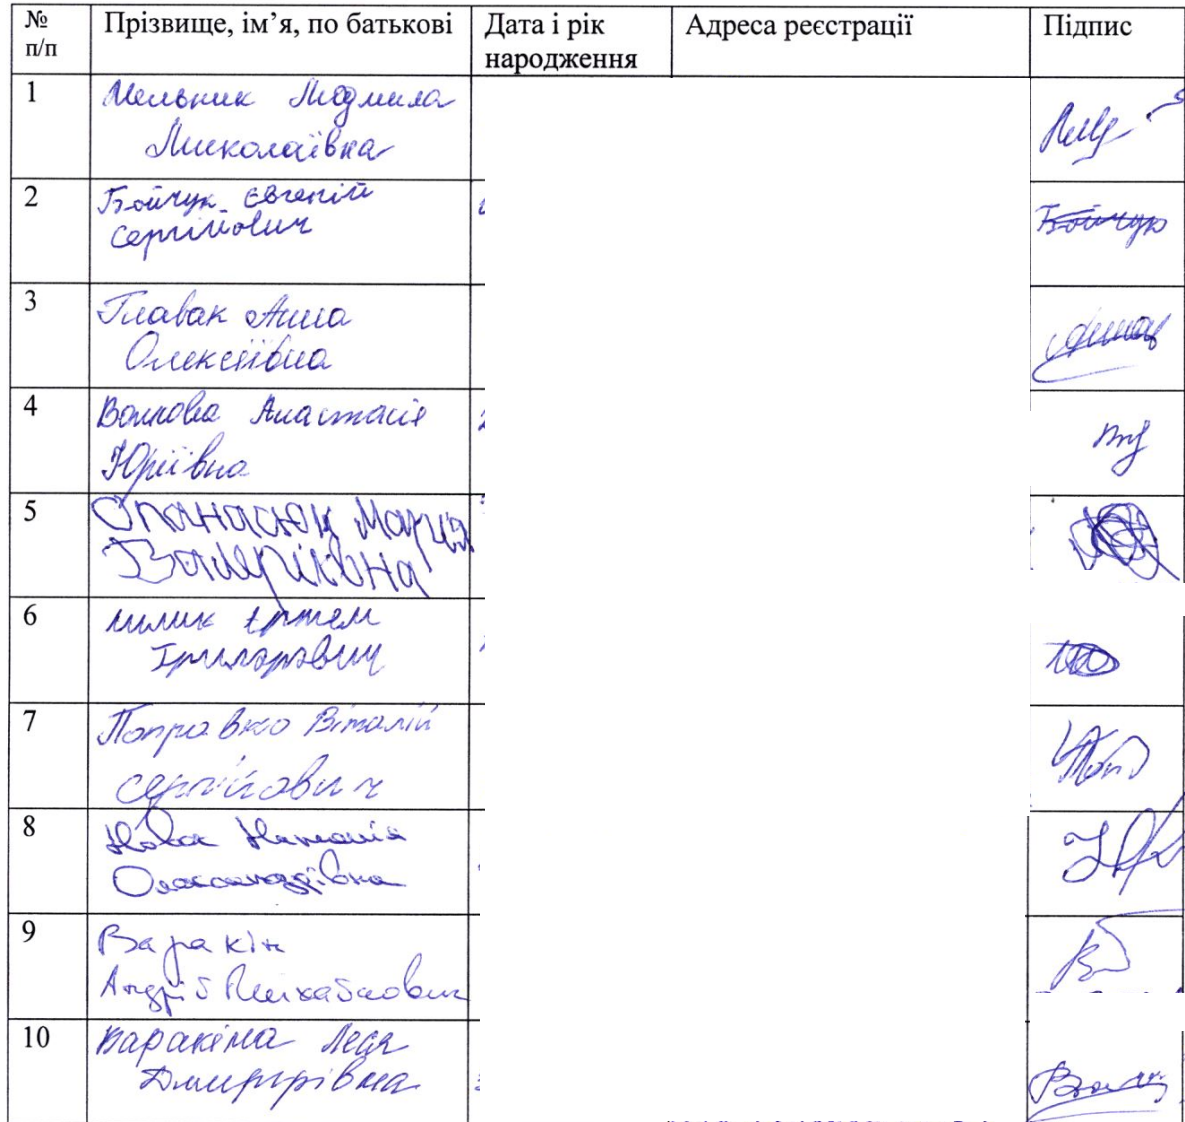 № п/п Прізвище, ім’я, по батькові Дата і рік народження Адреса реєстрації Підпис
1 Мельник Людмила
Миколаївна
2 Бойчук Євгеній
Сергійович
Бойчук
3 Главак Анна
Олексіївна
4 Волкова Анастасія
Юріївна
5 Опанасюк Марія
Валеріївна
6 Шилик Артем
Григорович
7 Поправко Віталій
Сергійович
8 Новак Наталія
Олександрівна
9 Варакін
Андрій Михайлович
10 Варакіна Леся
Дмитрівна